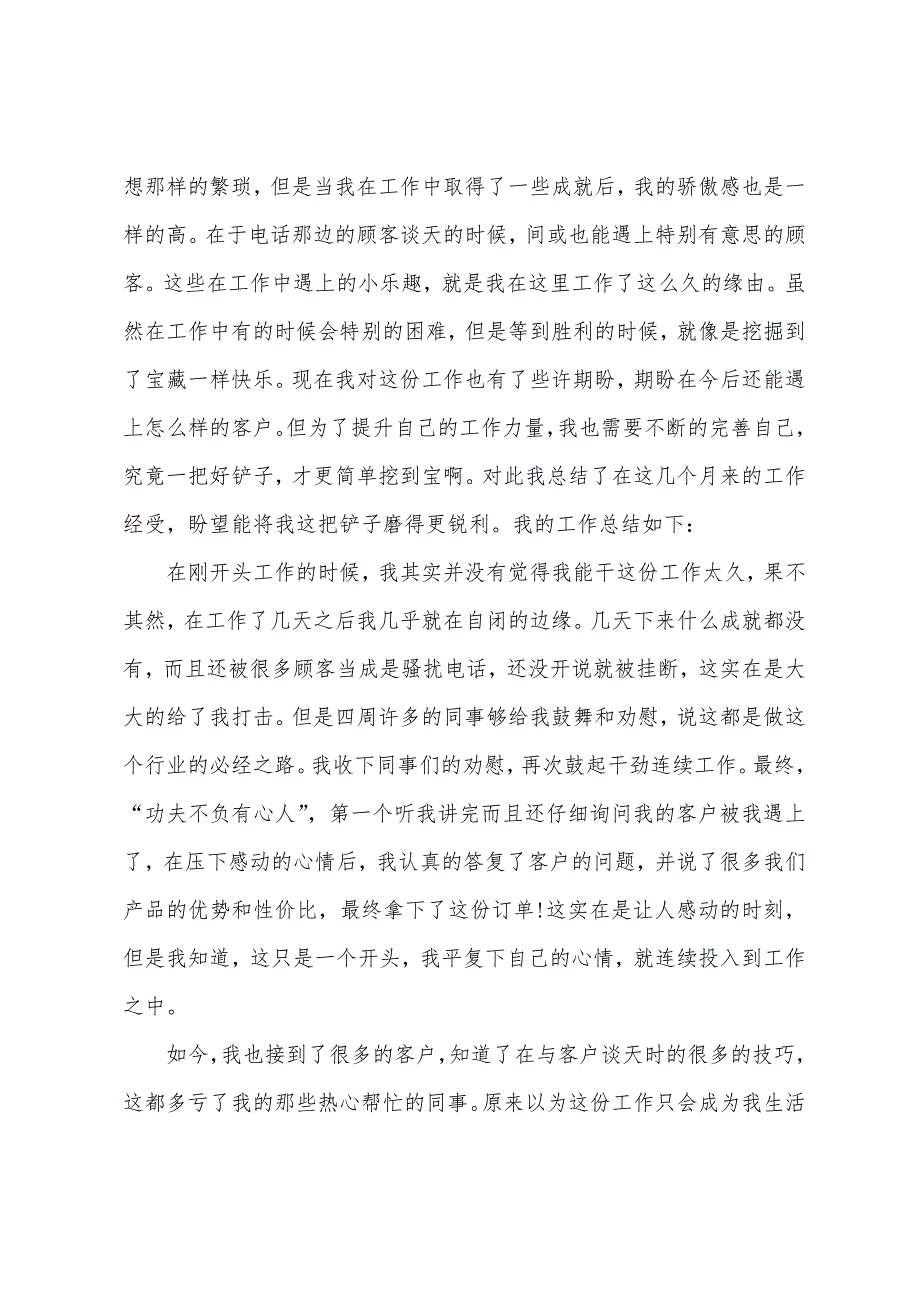 想那样的繁琐，但是当我在工作中取得了一些成就后，我的骄傲感也是一
样的高。在于电话那边的顾客谈天的时候，间或也能遇上特别有意思的顾
客。这些在工作中遇上的小乐趣，就是我在这里工作了这么久的缘由。虽
然在工作中有的时候会特别的困难，但是等到胜利的时候，就像是挖掘到
了宝藏一样快乐。现在我对这份工作也有了些许期盼，期盼在今后还能遇
上怎么样的客户。但为了提升自己的工作力量，我也需要不断的完善自己，
究竟一把好铲子，才更简单挖到宝啊。对此我总结了在这几个月来的工作
经受，盼望能将我这把铲子磨得更锐利。我的工作总结如下：
在刚开头工作的时候，我其实并没有觉得我能干这份工作太久，果不
其然，在工作了几天之后我几乎就在自闭的边缘。几天下来什么成就都没
有，而且还被很多顾客当成是骚扰电话，还没开说就被挂断，这实在是大
大的给了我打击。但是四周许多的同事够给我鼓舞和劝慰，说这都是做这
个行业的必经之路。我收下同事们的劝慰，再次鼓起干劲连续工作。最终，
“功夫不负有心人”，第一个听我讲完而且还仔细询问我的客户被我遇上
了，在压下感动的心情后，我认真的答复了客户的问题，并说了很多我们
产品的优势和性价比，最终拿下了这份订单!这实在是让人感动的时刻，
但是我知道，这只是一个开头，我平复下自己的心情，就连续投入到工作
之中。
如今，我也接到了很多的客户，知道了在与客户谈天时的很多的技巧，
这都多亏了我的那些热心帮忙的同事。原来以为这份工作只会成为我生活